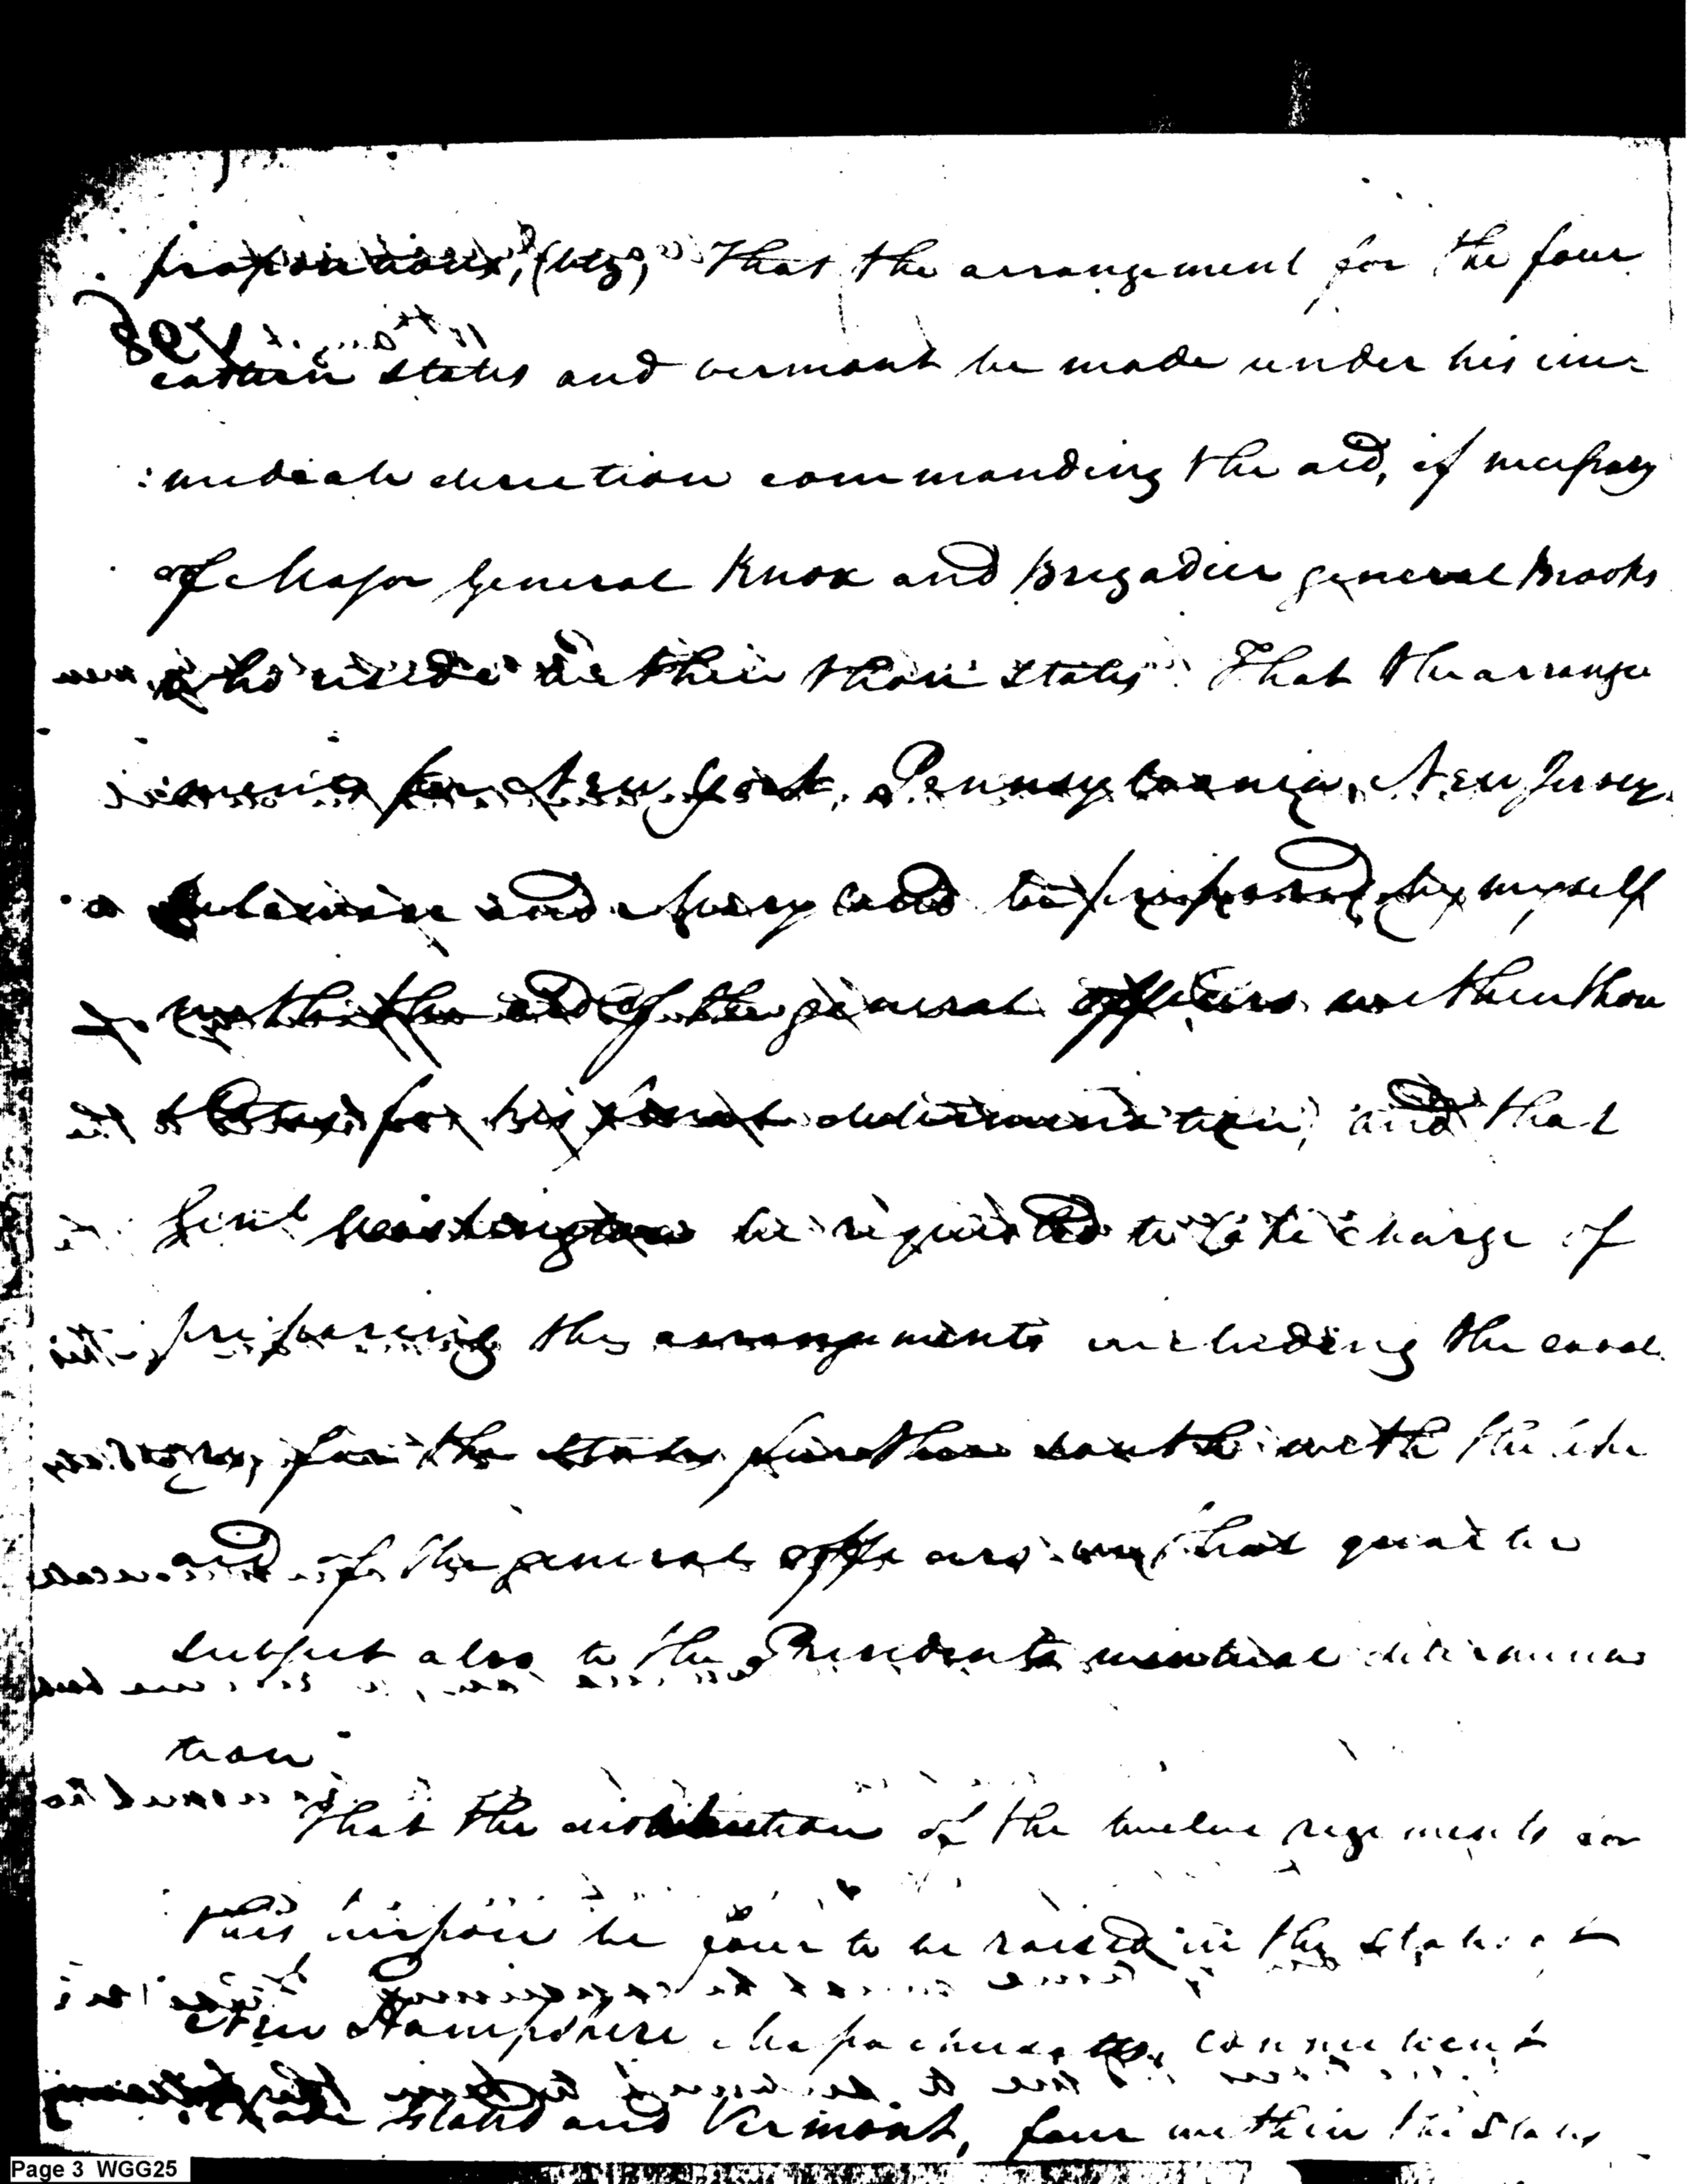 propositions, (viz,) "That the arrangement for the four
eastern states and vermont be made under his im=
:mediate direction commanding the aid, if necessary
of Major General Knox and Brigadier general Brooks
who reside within those states. That the arrange
ment for New York, Pennsylvania, New Jersey,
Delaware and Maryland be prepared by myself
with the aid of the general officers within those
states for his final determination, and that
Genl Washington be requested to take charge of
preparing the arrangements including the caval
for the states further south with the
aid of the general officers in that quarter
subject also to the Presidents determina
tion"
That the distribution of the twelve regiments
this be four to be raised in the states of
New Hampshire Massachusetts, connecticut
Island and Vermont, four within the states
Page 3 WGG25